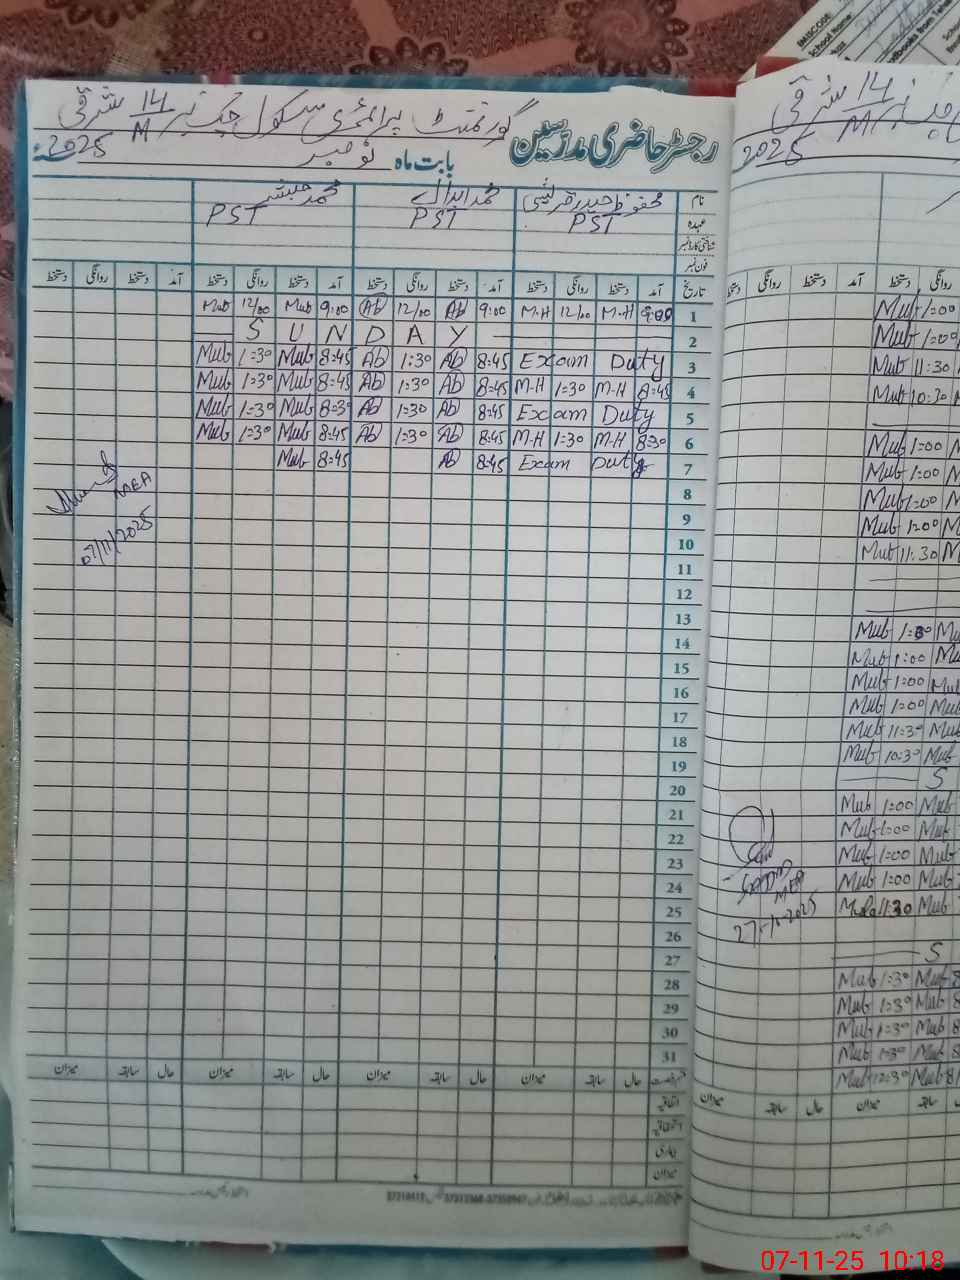 گورنمنٹ پرائمری سکول چک نمبر 14/M شرقی
رجسٹر حاضری مدرسین
بابت ماہ نومبر 2025
نام محفوظ حیدر قریشی محمد ابدالی محمد مبشر
عہدہ PST PST PST
شناختی کارڈ نمبر
فون نمبر
تاریخ آمد دستخط روانگی دستخط آمد دستخط روانگی دستخط آمد دستخط روانگی دستخط آمد دستخط روانگی دستخط
1 9:00 M-H 12/00 M-H 9:00 Ab 12/00 Ab 9:00 Mub 12/00 Mub
2 SUNDAY
3 Exam Duty 8:45 Ab 1:30 Ab 8:45 Mub 1:30 Mub
4 8:45 M-H 1:30 M-H 8:45 Ab 1:30 Ab 8:45 Mub 1:30 Mub
5 Exam Duty 8:45 Ab 1:30 Ab 8:30 Mub 1:30 Mub
6 8:30 M-H 1:30 M-H 8:45 Ab 1:30 Ab 8:45 Mub 1:30 Mub
7 Exam Duty 8:45 Ab 8:45 Mub
MEA
07/11/2025
8
9
10
11
12
13
14
15
16
17
18
19
20
21
22
23
24
25
26
27
28
29
30
31
حال سابقہ میزان حال سابقہ میزان حال سابقہ میزان حال سابقہ میزان
اتفاقیہ
بیماری
میزان
14/M شرقی
2025
روانگی دستخط آمد دستخط روانگی دستخط
Mub 1:00
Mub 1:00
Mub 11:30
Mub 10:30
Mub 1:00
Mub 1:00
Mub 1:00
Mub 1:00
Mub 11:30
Mub 1:30 Mub
Mub 1:00 Mub
Mub 1:00 Mub
Mub 1:00 Mub
Mub 11:30 Mub
Mub 10:30 Mub
S
Mub 1:00 Mub
Mub 1:00 Mub
Mub 1:00 Mub
Mub 1:00 Mub
Mub 11:30 Mub
MEA
27-10-2025
S
Mub 1:30 Mub 8
Mub 1:30 Mub 8
Mub 1:30 Mub 8
Mub 1:30 Mub 8
Mub 12:30 Mub 8
سابقہ میزان حال سابقہ میزان
07-11-25 10:18